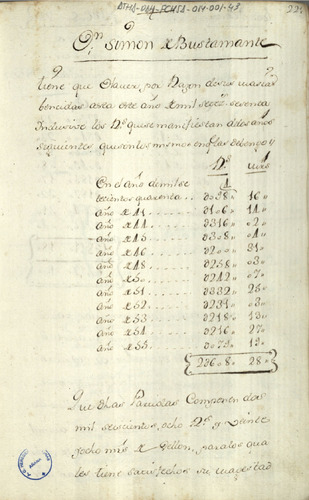 AIHA-014-PCHSA-014-001-43
22
Dn. Simon de Bustamante
tiene que Haver, por Razon de sus
bencidas asta este año de mil setez. sesenta
Inclusive los Ds. que se manifiestan a de las años
siguientes que son los mismos en q.
Ds. mrs
En el año de mil se
tecientos quarenta.. 0.38. 16.
año de 41...... 0106. 14.
año de 44...... 0316. 02.
año de 45...... 0308. 04.
año de 46...... 31.
año de 48...... 0258. 03.
año de 50...... 0242. 07.
año de 51...... 0332. 25.
año de 52...... 0231. 03.
año de 53...... 0218. 13.
año de 54...... 0216. 27.
año de 55...... 0.75. 19.
23608. 28.
Que dhas Partidas Componen dos
mil seiscientos, ocho Ds. y Veinte
y ocho mrs. de Vellon, para los qua
les tiene satisfechos su magestad